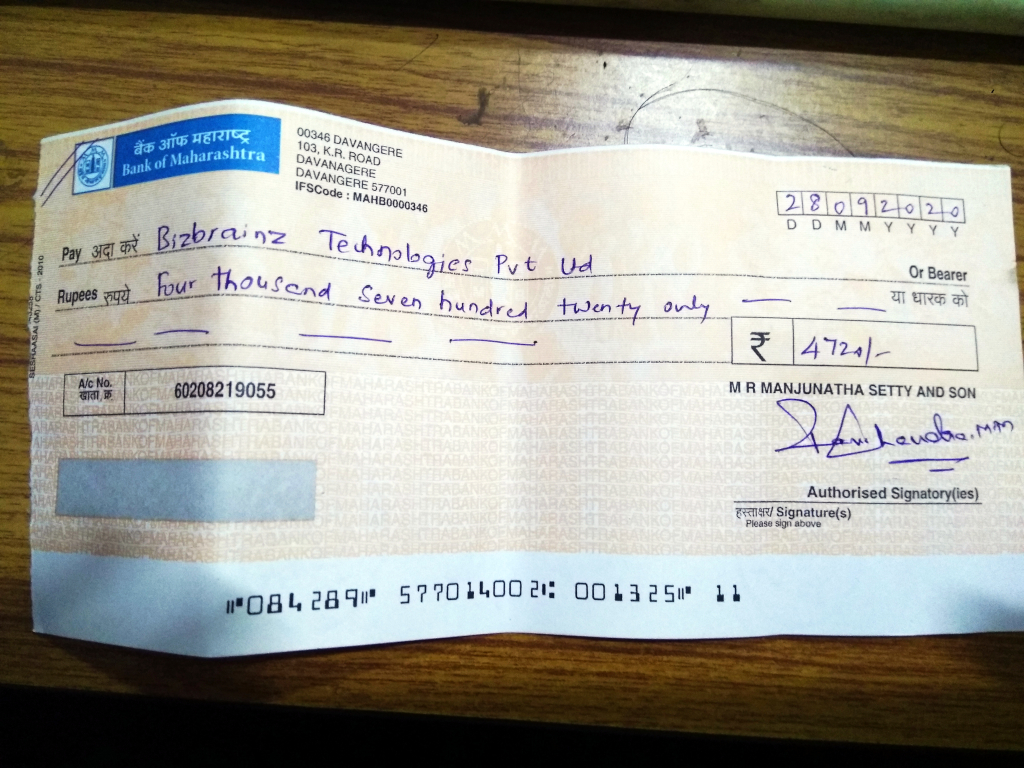 बैंक ऑफ महाराष्ट्र
Bank of Maharashtra
00346 DAVANGERE
103, K.R. ROAD
DAVANAGERE
DAVANGERE 577001
IFSCode : MAHB0000346
28092020
D D M M Y Y Y Y
Pay अदा करें Bizbrainz Technologies Pvt Ltd
Or Bearer
Rupees रुपये Four thousand seven hundred twenty only
या धारक को
₹ 4720/-
A/c No.
खाता क्र. 60208219055
M R MANJUNATHA SETTY AND SON
Authorised Signatory(ies)
हस्ताक्षर/ Signature(s)
Please sign above
⑈084289⑈ 577014002⑆ 001325⑈ 11